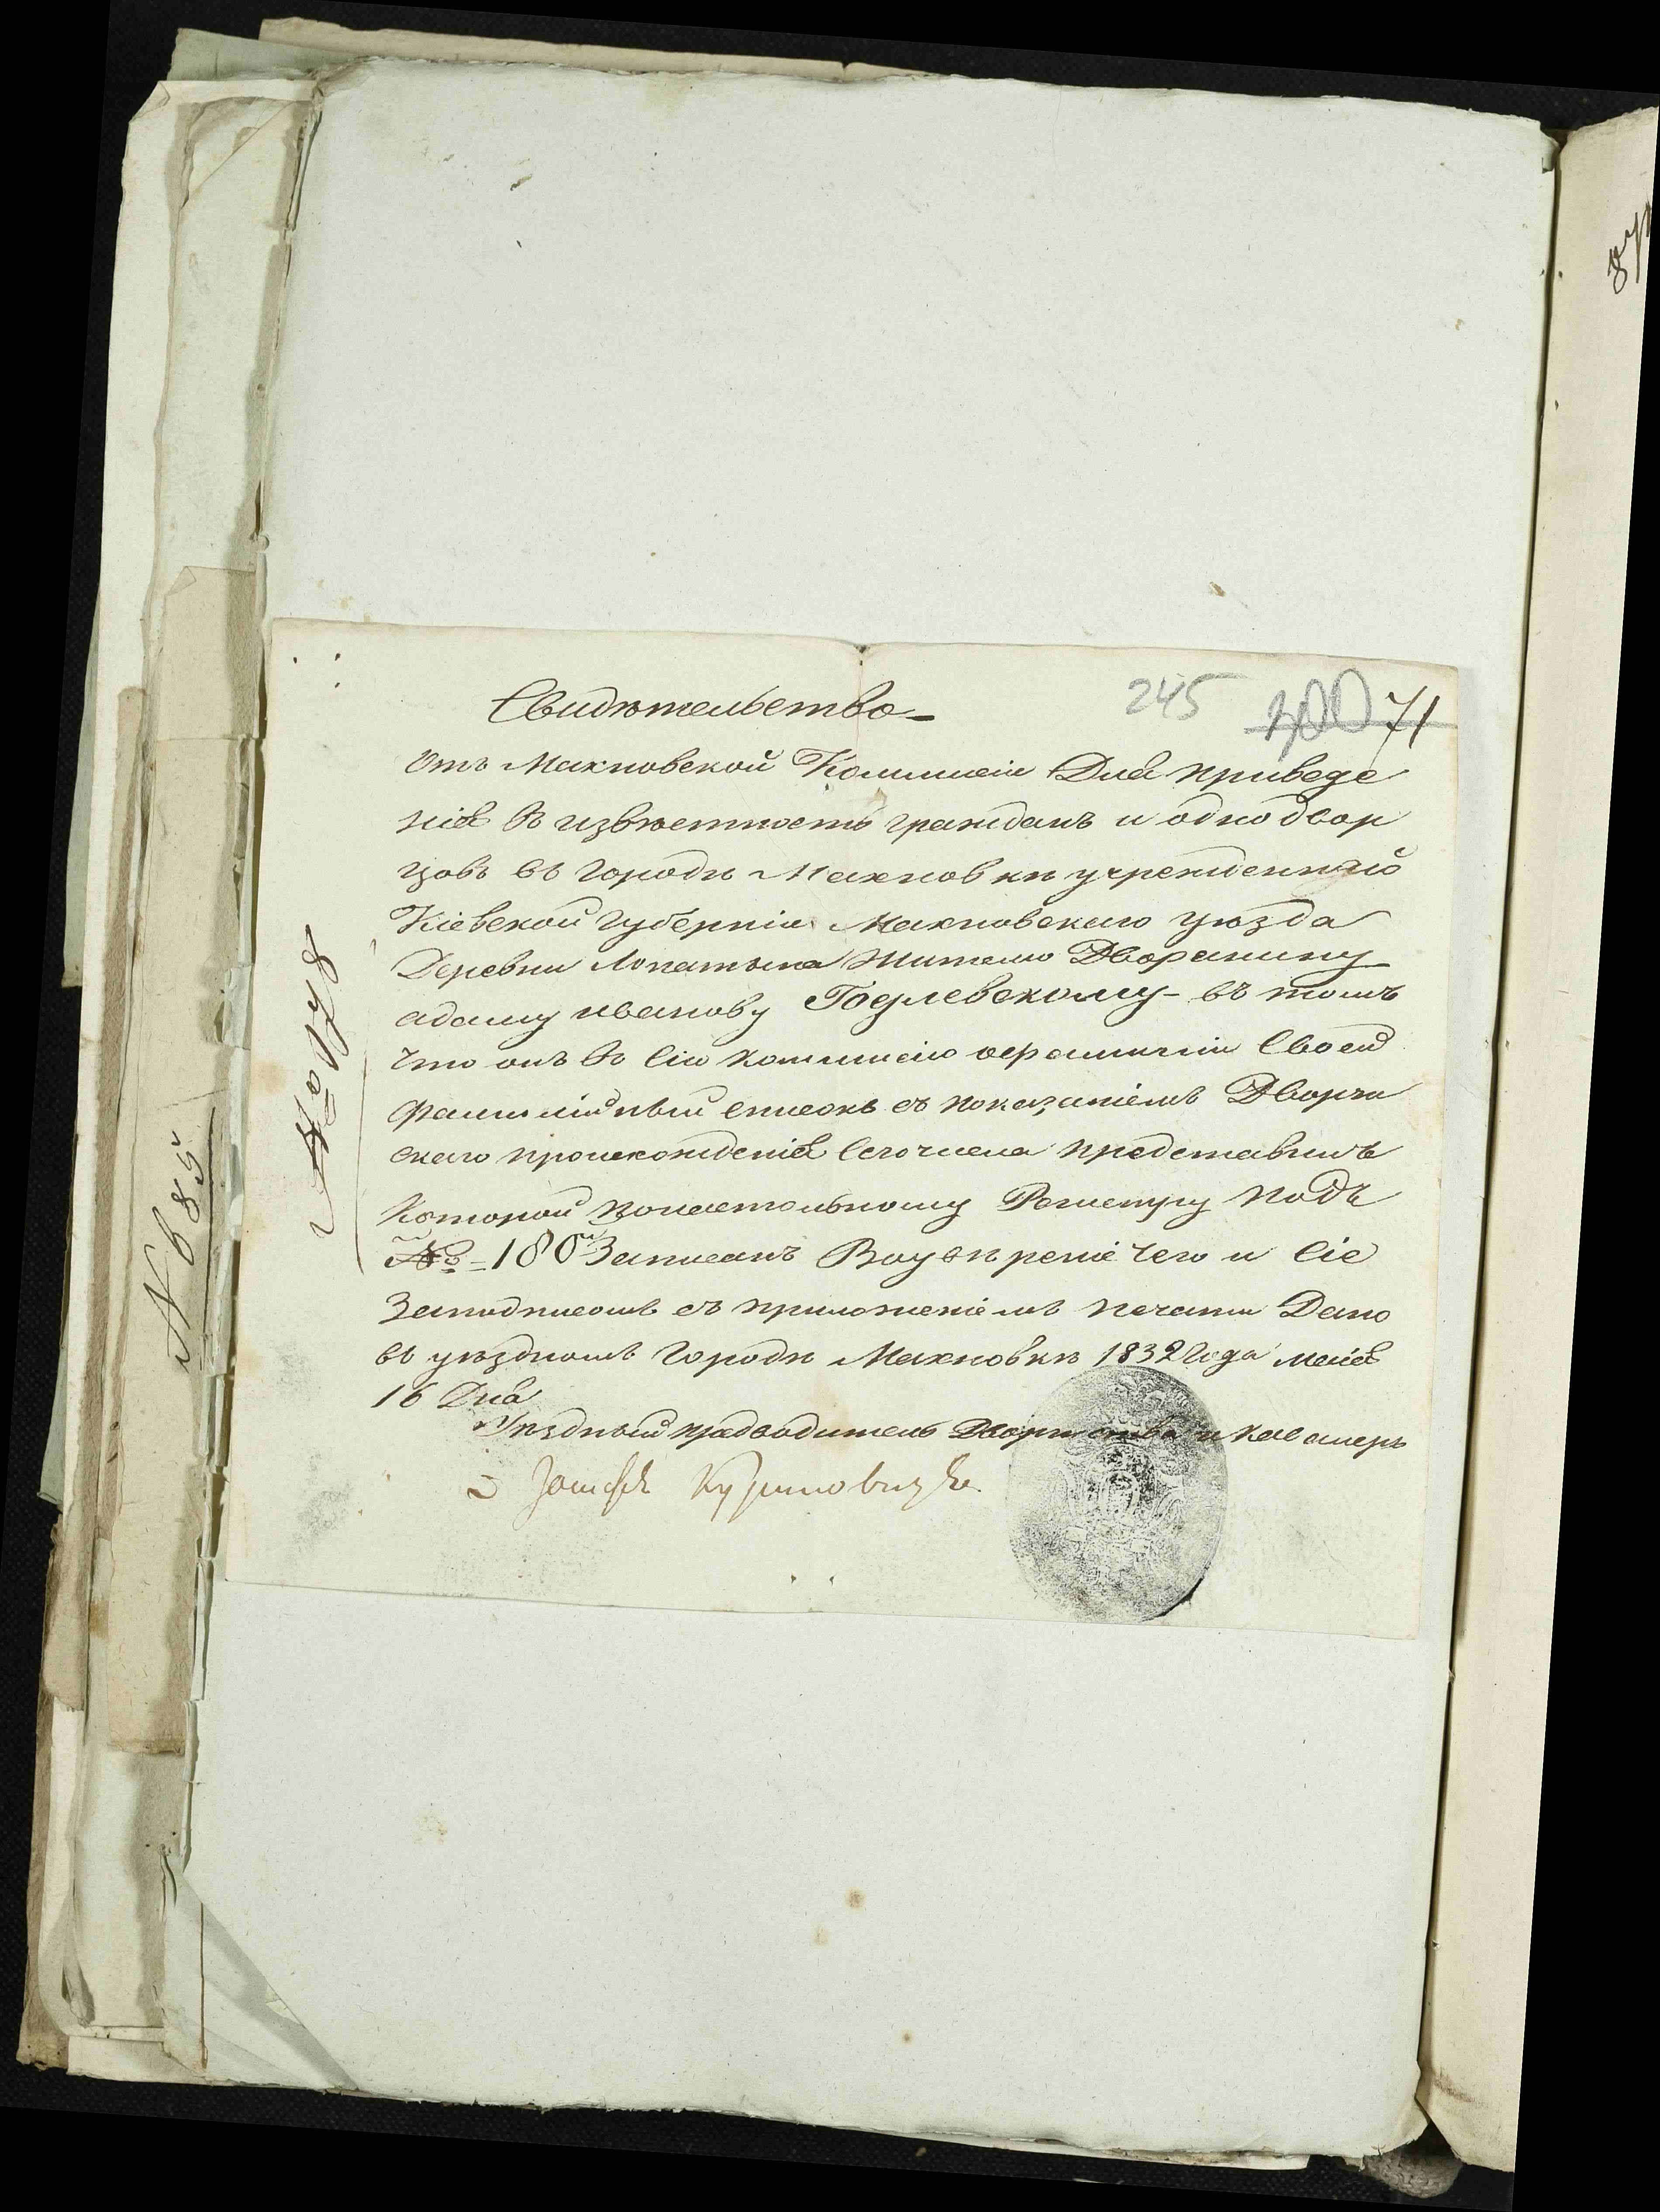 245 71
Свидѣтельство
Отъ Махновской Коммисіи Для приведе
нія въ извѣстность гражданъ и однодвор
цовъ въ городѣ Махновкѣ учрежденной
Кіевской Губерніи Махновскаго уѣзда
Деревни Лопатына Жителю Дворянину
адаму иванову Годлевскому - въ томъ
что онъ въ Сію коммисію о Своей
фамилій ный списокъ съ показаніемъ Дворян
скаго происхожденія Сего числа представилъ
Которой Регистру подъ
№ = 180 Записанъ Воувѣреніе чего и Сіе
Заподписомъ съ приложеніемъ печати Дано
въ уѣздномъ городѣ Махновкѣ 1832 года маія
16 Дня
Уѣздный предводитель Дворянства и Кавалеръ
№ 85